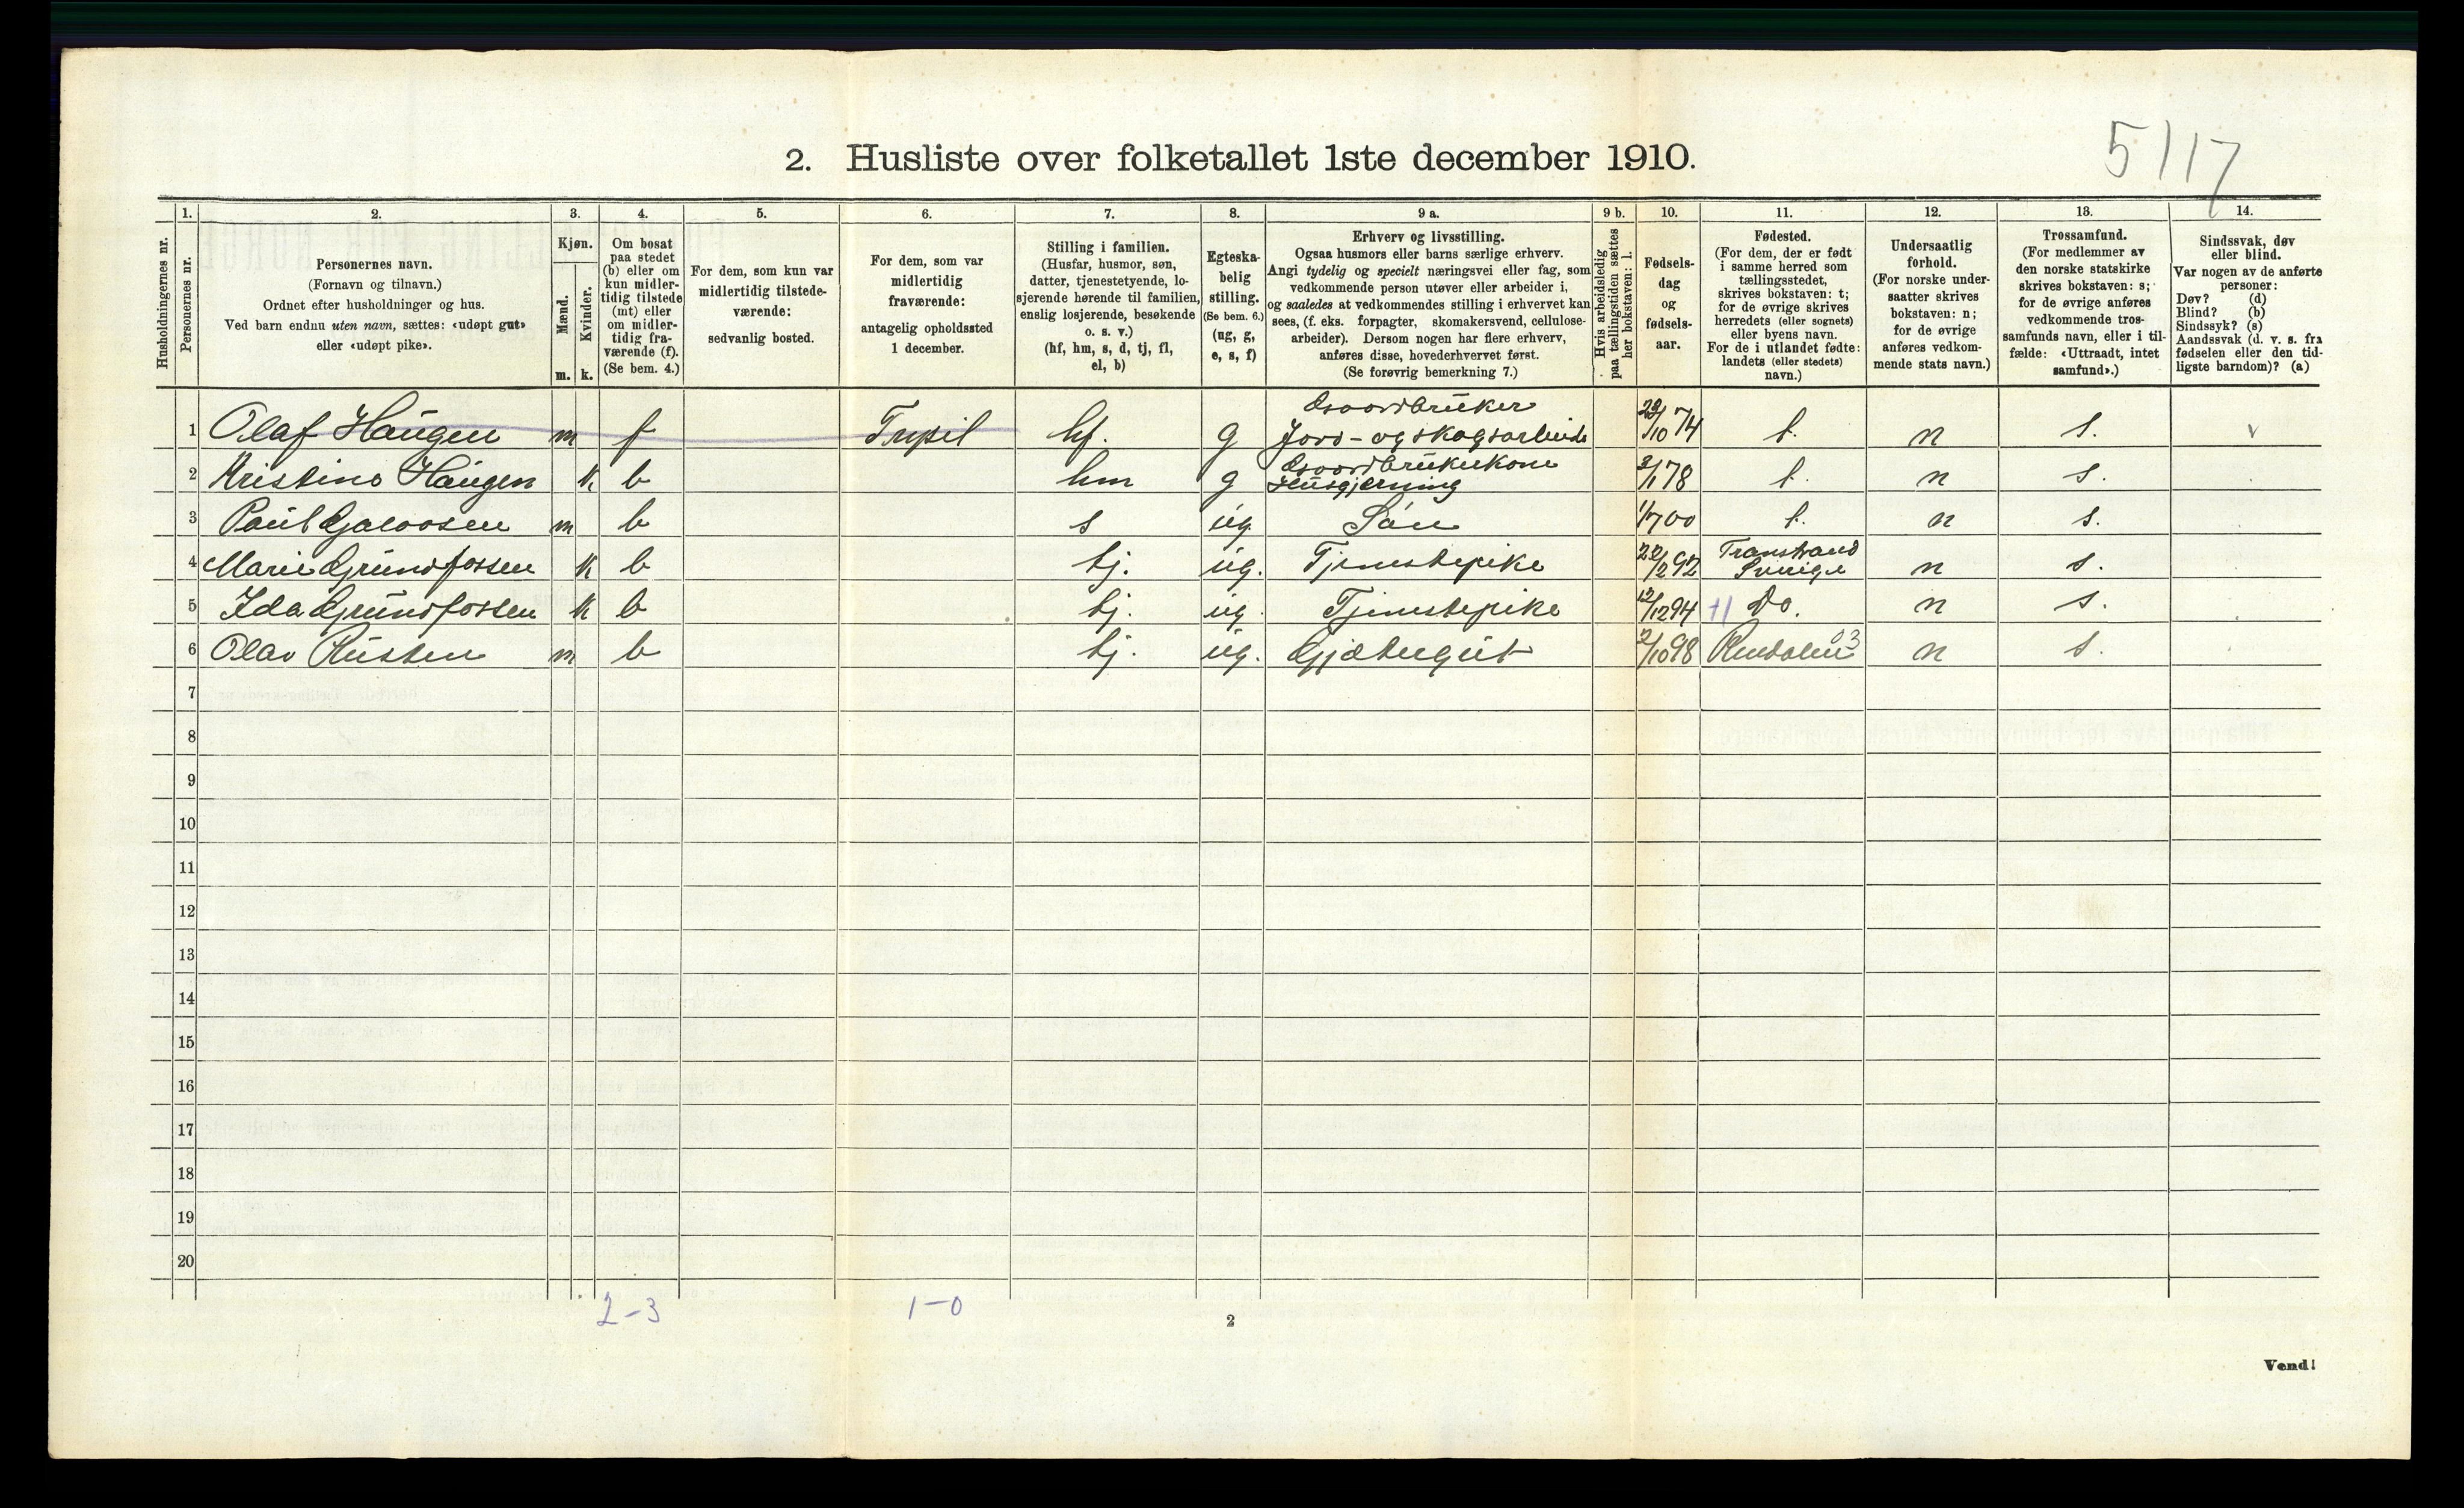 2. Husliste over folketallet 1ste december 1910.
5117
Husholdningernes nr.
1.
Personernes nr.
2.
Personernes navn.
(Fornavn og tilnavn.)
Ordnet efter husholdninger og hus.
Ved barn endnu uten navn, sættes: «udøpt gut»
eller «udøpt pike».
3.
Kjøn.
Mænd.
Kvinder.
m. k.
4.
Om bosat
paa stedet
(b) eller om
kun midler-
tidig tilstede
(mt) eller
om midler-
tidig fra-
værende (f).
(Se bem. 4.)
5.
For dem, som kun var
midlertidig tilstede-
værende:
sedvanlig bosted.
6.
For dem, som var
midlertidig
fraværende:
antagelig opholdssted
1 december.
7.
Stilling i familien.
(Husfar, husmor, søn,
datter, tjenestetyende, lo-
sjerende hørende til familien,
enslig losjerende, besøkende
o. s. v.)
(hf, hm, s, d, tj, fl,
el, b)
8.
Egteska-
belig
stilling.
(Se bem. 6.)
(ug, g,
e, s, f)
9 a.
Erhverv og livsstilling.
Ogsaa husmors eller barns særlige erhverv.
Angi tydelig og specielt næringsvei eller fag, som
vedkommende person utøver eller arbeider i,
og saaledes at vedkommendes stilling i erhvervet kan
sees, (f. eks. forpagter, skomakersvend, cellulose-
arbeider). Dersom nogen har flere erhverv,
anføres disse, hovederhvervet først.
(Se forøvrig bemerkning 7.)
9 b.
Hvis arbeidsledig
paa tællingstiden sættes
her bokstaven: l.
10.
Fødsels-
dag
og
fødsels-
aar.
11.
Fødested.
(For dem, der er født
i samme herred som
tællingsstedet,
skrives bokstaven: t;
for de øvrige skrives
herredets (eller sognets)
eller byens navn.
For de i utlandet fødte:
landets (eller stedets)
navn.)
12.
Undersaatlig
forhold.
(For norske under-
saatter skrives
bokstaven: n;
for de øvrige
anføres vedkom-
mende stats navn.)
13.
Trossamfund.
(For medlemmer av
den norske statskirke
skrives bokstaven: s;
for de øvrige anføres
vedkommende tros-
samfunds navn, eller i til-
fælde: «Uttraadt, intet
samfund».)
14.
Sindssvak, døv
eller blind.
Var nogen av de anførte
personer:
Døv? (d)
Blind? (b)
Sindssyk? (s)
Aandssvak (d. v. s. fra
fødselen eller den tid-
ligste barndom)? (a)
Gaardbruker
1 Olaf Haugen m f Trysil hf. g Jord- og skogsarbeide 10 74 t. n s.
Gaardbrukerkone
2 Kristine Haugen k b hm g Husgjerning 3/1 78 t. n s.
3 Paul m b s ug Søn 1/7 00 t. n s.
Transtrand
4 Marie Grundfossen k b tj. ug. Tjenestepike 22/2 92 Sverige n s.
5 Ida Grundfossen k b tj. ug. Tjenestepike 12/12 94 Do. n s.
6 Olav Rusten m b tj. ug. Gjætergut 2/10 98 Rendalen 03 n s.
7
8
9
10
11
12
13
14
15
16
17
18
19
20
2-3 1-0
2
Vend!